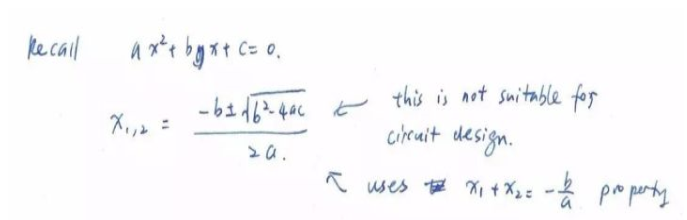 Recall ax² + bx + c = 0.
x₁,₂ = (-b ± √(b²-4ac)) / 2a. ← this is not suitable for
circuit design.
↖ uses x₁ + x₂ = -b/a property